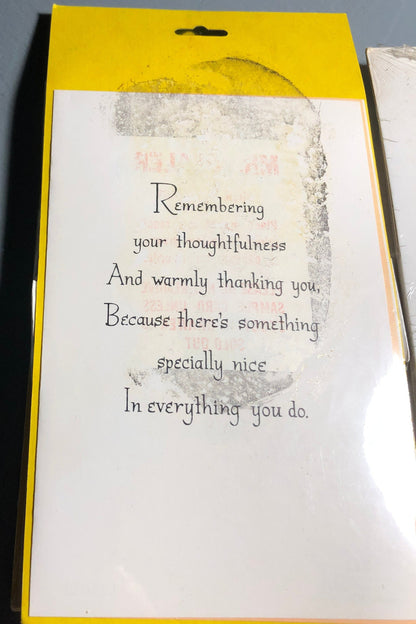 Remembering
your thoughtfulness
And warmly thanking you,
Because there's something
specially nice
In everything you do.